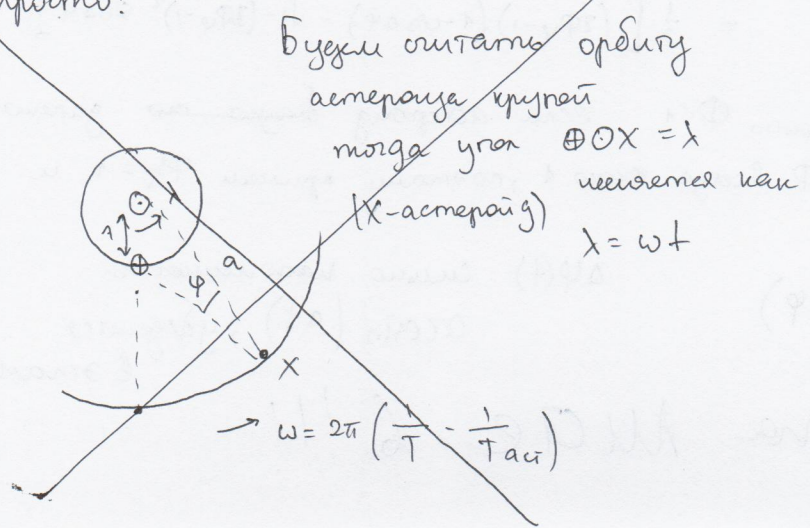 просто:
Будем считать орбиту
астероида круглой
тогда угол ⊕⊙X = λ
меняется как
(X-астеройд)
λ = ωt
1
a
φ
X
→ ω = 2π (1/T - 1/Tаст)